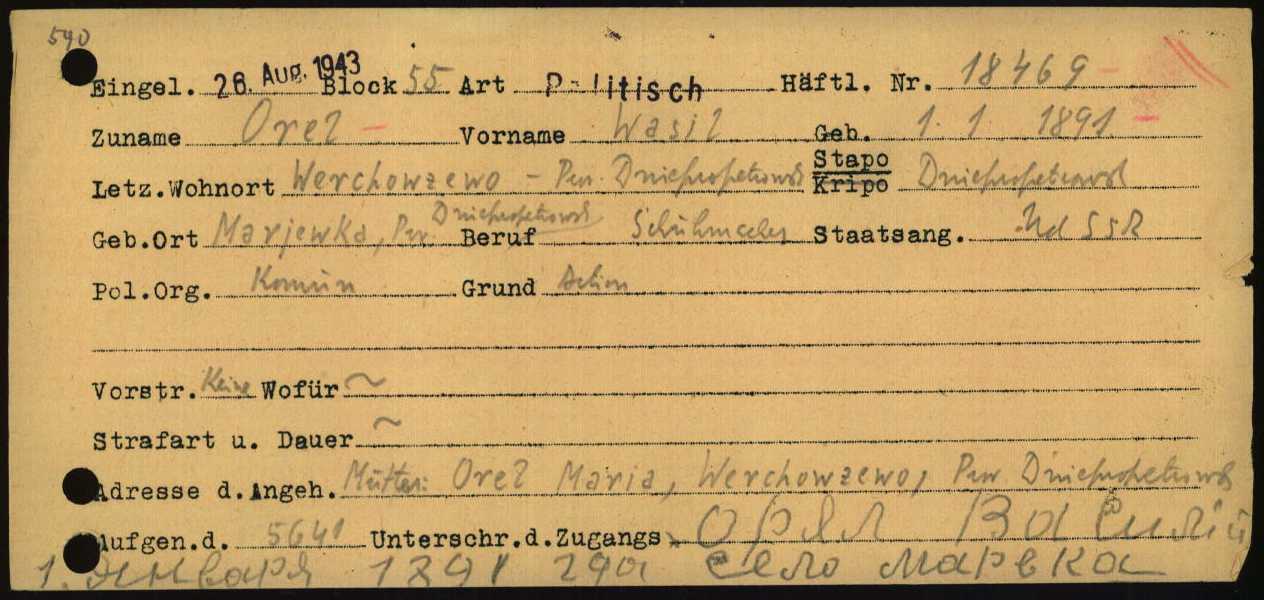 590
Eingel. 26. Aug. 1943 Block 55 Art Politisch Häftl. Nr. 18469
Zuname Orel Vorname Wasil Geb. 1. 1. 1891
Letz.Wohnort Werchowzewo - Dniepropetrowsk Stapo Kripo Dniepropetrowsk
Geb.Ort Marjewka, Dniepropetrowsk Beruf Schuhmacher Staatsang. UdSSR
Pol.Org. Komun Grund Action
Vorstr. Keine Wofür ~
Strafart u. Dauer ~
Adresse d. Angeh. Mutter: Orel Maria, Werchowzewo, Dniepropetrowsk
Aufgen.d. 5641 Unterschr.d.Zugangs Орел Василий
1. Января 1891 года село Марьевка